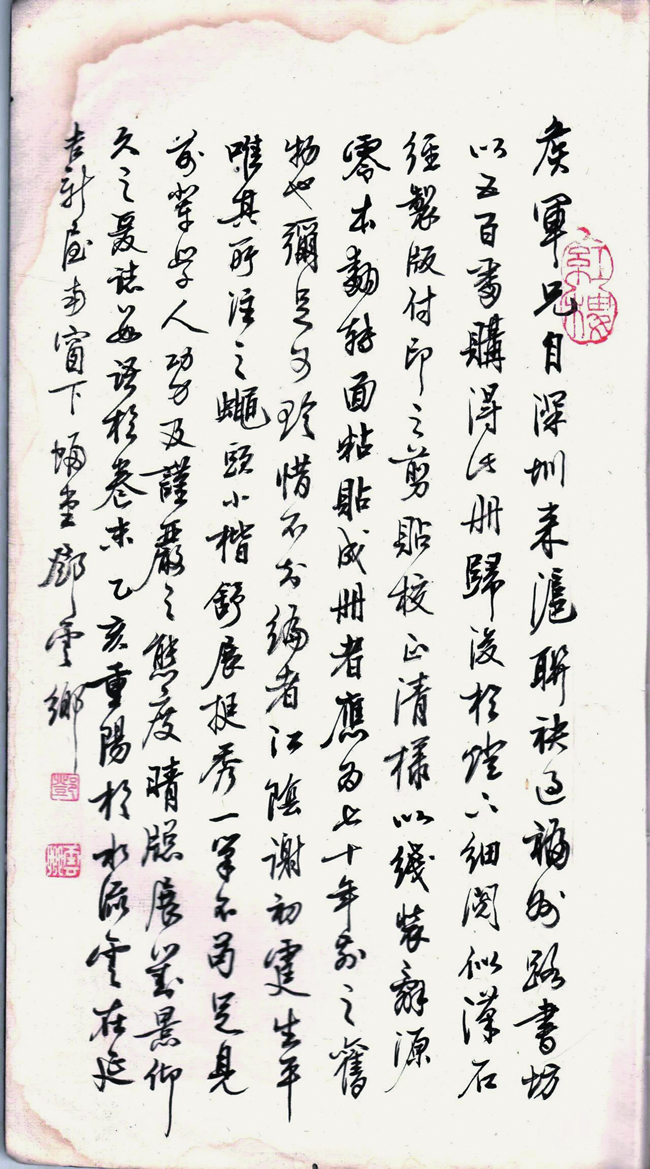 侯軍兄自深圳来滬聯袂過福州路書坊
以五百番購得此册歸後於燈下細閲似漢石
經製版付印之剪貼校正清樣以綫裝辭源
零本翻轉面粘貼成册者應為七十年前之舊
物也彌足可珍惜不知編者江陰謝初霆生平
唯其所注之蠅頭小楷舒展挺秀一筆不苟足見
前輩學人功力及謹嚴之態度晴窗展對景仰
久之爰誌數語於卷末乙亥重陽於水流雲在延
吉新屋南窗下蝸堂鄧雲鄉
紅樓
鄧
雲鄉